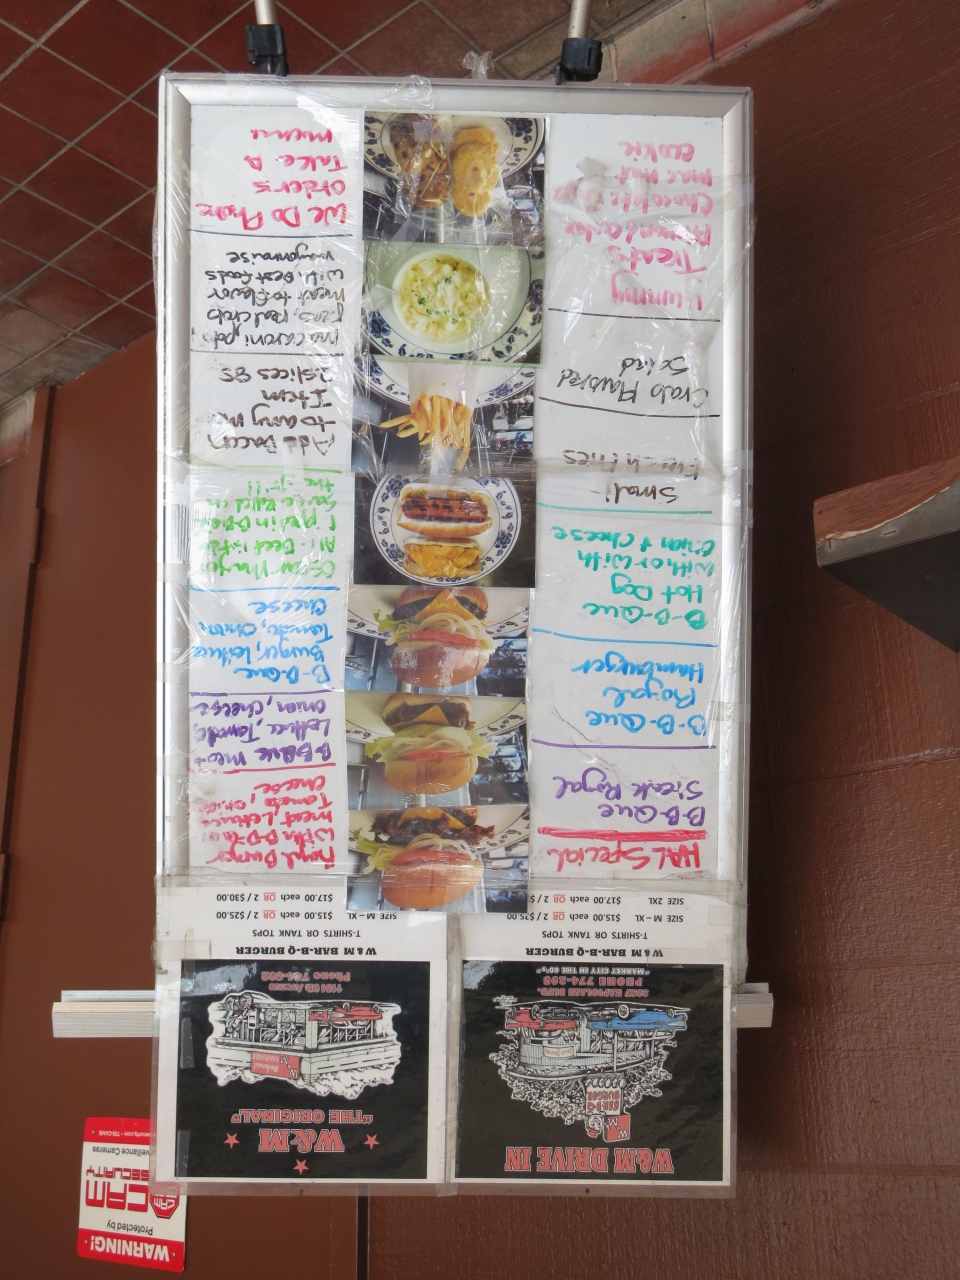 W&M DRIVE IN
BAR-B-Q
BURGER
KAPIOLANI BLVD.
PHONE
"MARKET CITY IN THE 60'S"
W&M BAR-B-Q BURGER
T-SHIRTS OR TANK TOPS
SIZE M – XL $15.00 each OR 2 / $25.00
SIZE 2XL $17.00 each OR 2 / $
W&M
"THE ORIGINAL"
W&M
AVENUE
Phone
W&M BAR-B-Q BURGER
T-SHIRTS OR TANK TOPS
SIZE M – XL $15.00 each OR 2 / $25.00
$17.00 each OR 2 / $30.00
HAL Special
B-B-Que
Steak Royal
B-B-Que
Royal
Hamburger
B-B-Que
Hot Dog
With or With
Onion + Cheese
Small -
French Fries
Crab Flavored
Salad
Yummy
Treats
Chocolate
Mac Nut
Cookie
Royal Burger
With B-B-Que
meat, Lettuce
Tomato, Onion
Cheese
B-B-Que meat
Lettuce, Tomato,
Onion, Cheese
B-B-Que
Burger, Lettuce
Tomato, Onion
Cheese
All-Beef
in B-B-Q
Sauce
the grill
Add Bacon
to any menu
Item
2 slices
macaroni, pota
peas,
meat to flavor
with Bestfoods
mayonnaise
We Do Phone
Orders
Take A
menu
WARNING!
Protected by
CAM
SECURITY
CAM
Surveillance Cameras